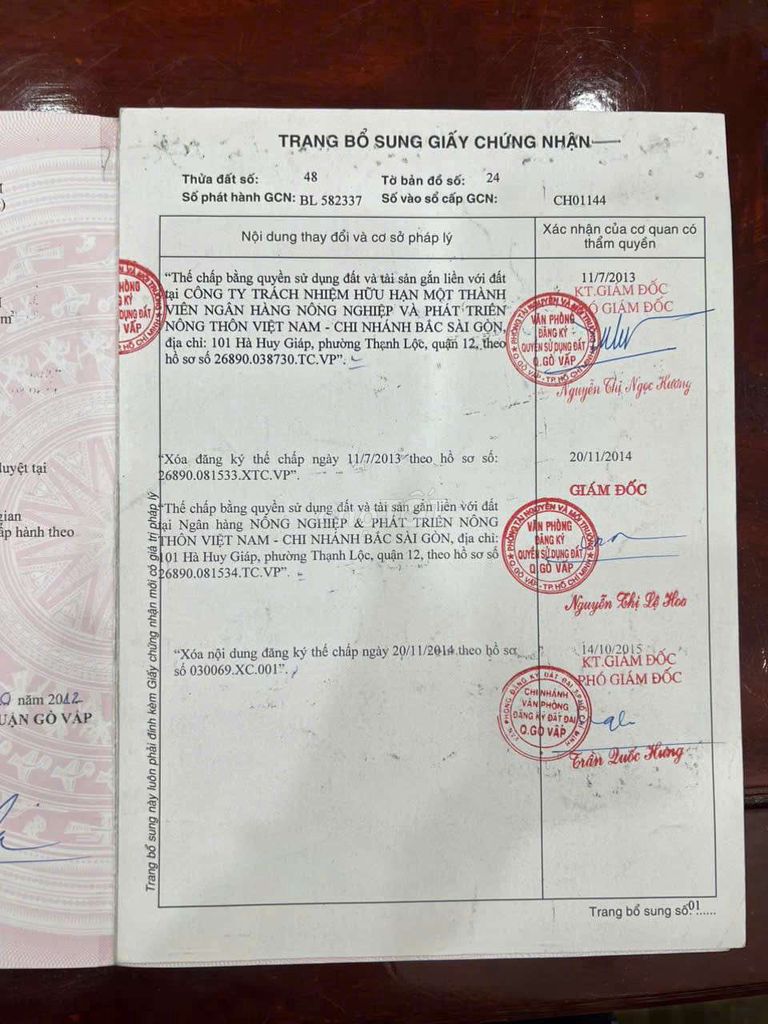 TRANG BỔ SUNG GIẤY CHỨNG NHẬN
Thửa đất số: 48 Tờ bản đồ số: 24
Số phát hành GCN: BL 582337 Số vào sổ cấp GCN: CH01144
Nội dung thay đổi và cơ sở pháp lý
Xác nhận của cơ quan có
thẩm quyền
"Thế chấp bằng quyền sử dụng đất và tài sản gắn liền với đất
tại CÔNG TY TRÁCH NHIỆM HỮU HẠN MỘT THÀNH
VIÊN NGÂN HÀNG NÔNG NGHIỆP VÀ PHÁT TRIỂN
NÔNG THÔN VIỆT NAM - CHI NHÁNH BẮC SÀI GÒN,
địa chỉ: 101 Hà Huy Giáp, phường Thạnh Lộc, quận 12, theo
hồ sơ số 26890.038730.TC.VP".
11/7/2013
KT.GIÁM ĐỐC
PHÓ GIÁM ĐỐC
PHÒNG TÀI NGUYÊN VÀ MÔI TRƯỜNG
VĂN PHÒNG
ĐĂNG KÝ
QUYỀN SỬ DỤNG ĐẤT
Q.GÒ VẤP
Q.GÒ VẤP - TP.HỒ CHÍ MINH
Nguyễn Thị Ngọc Hương
"Xóa đăng ký thế chấp ngày 11/7/2013 theo hồ sơ số:
26890.081533.XTC.VP".
"Thế chấp bằng quyền sử dụng đất và tài sản gắn liền với đất
tại Ngân hàng NÔNG NGHIỆP & PHÁT TRIỂN NÔNG
THÔN VIỆT NAM - CHI NHÁNH BẮC SÀI GÒN, địa chỉ:
101 Hà Huy Giáp, phường Thạnh Lộc, quận 12, theo hồ sơ số
26890.081534.TC.VP".
20/11/2014
GIÁM ĐỐC
PHÒNG TÀI NGUYÊN VÀ MÔI TRƯỜNG
VĂN PHÒNG
ĐĂNG KÝ
QUYỀN SỬ DỤNG ĐẤT
Q.GÒ VẤP
Q.GÒ VẤP - TP.HỒ CHÍ MINH
Nguyễn Thị Lệ Hoa
"Xóa nội dung đăng ký thế chấp ngày 20/11/2014 theo hồ sơ
số 030069.XC.001".
14/10/2015
KT.GIÁM ĐỐC
PHÓ GIÁM ĐỐC
VĂN PHÒNG ĐĂNG KÝ ĐẤT ĐAI TP.HỒ CHÍ MINH
CHI NHÁNH
VĂN PHÒNG
ĐĂNG KÝ ĐẤT ĐAI
Q.GÒ VẤP
Trần Quốc Hưng
Trang bổ sung này luôn phải đính kèm Giấy chứng nhận mới có giá trị pháp lý
Trang bổ sung số:01......
HÒNG
G KÝ
DỤNG ĐẤT
VẤP
m²
duyệt tại
gian
ấp hành theo
năm 2012
UẬN GÒ VẤP